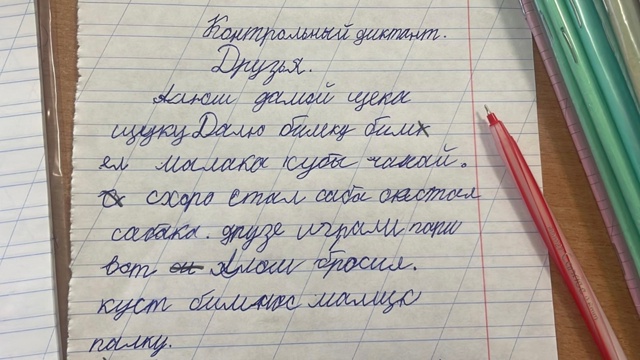 Контрольный диктант.
Друзья.
Алюш дамой щека
щедку Далю бимку бим
ел малака кубы чакай.
схоро стал саба окстал
сабака. друзе играли пари
вот Алош бросил.
куст бимнос малицк
палку.